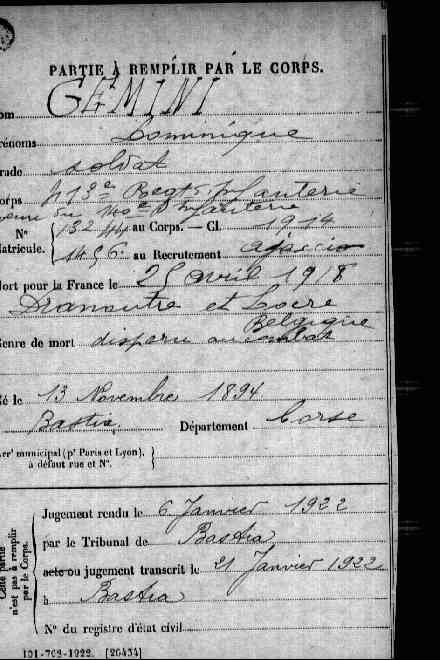 PARTIE À REMPLIR PAR LE CORPS.
om GEMINI
rénoms Dominique
rade soldat
orps 413e Regt. Infanterie
venu du 140e d'Infanterie
N° 132 au Corps. — Cl. 1914
atricule. 1456. au Recrutement ajaccio
ort pour la France le 25 avril 1918
Dranoutre et Locre
Belgique
enre de mort disparu au combat
é le 13 Novembre 1894
Bastia. Département Corse
rr' municipal (p' Paris et Lyon),
à défaut rue et N°.
Cette partie n'est pas à remplir par le Corps.
Jugement rendu le 6 Janvier 1922
par le Tribunal de Bastia
acte ou jugement transcrit le 21 Janvier 1922
à Bastia
N° du registre d'état civil
101-702-1922. [26434]